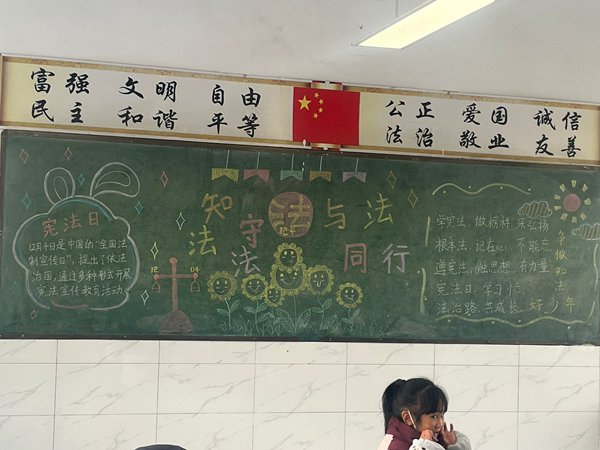 富强 文明 自由
民主 和谐 平等
公正 爱国 诚信
法治 敬业 友善
宪法日
12月4日是中国的“全国法
制宣传日”，提出了依法
治国，通过多种形式开展
宪法宣传教育活动。
12 04
知法
守法
12.4
与法
同行
学宪法、做标杆、来弘扬
根本法、记在心、不能忘
遵宪法、融思想、有力量
宪法日、学习忙
法治路、共成长
争做知法
好少年